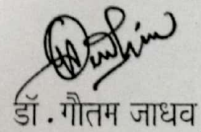 डॉ. गौतम जाधव